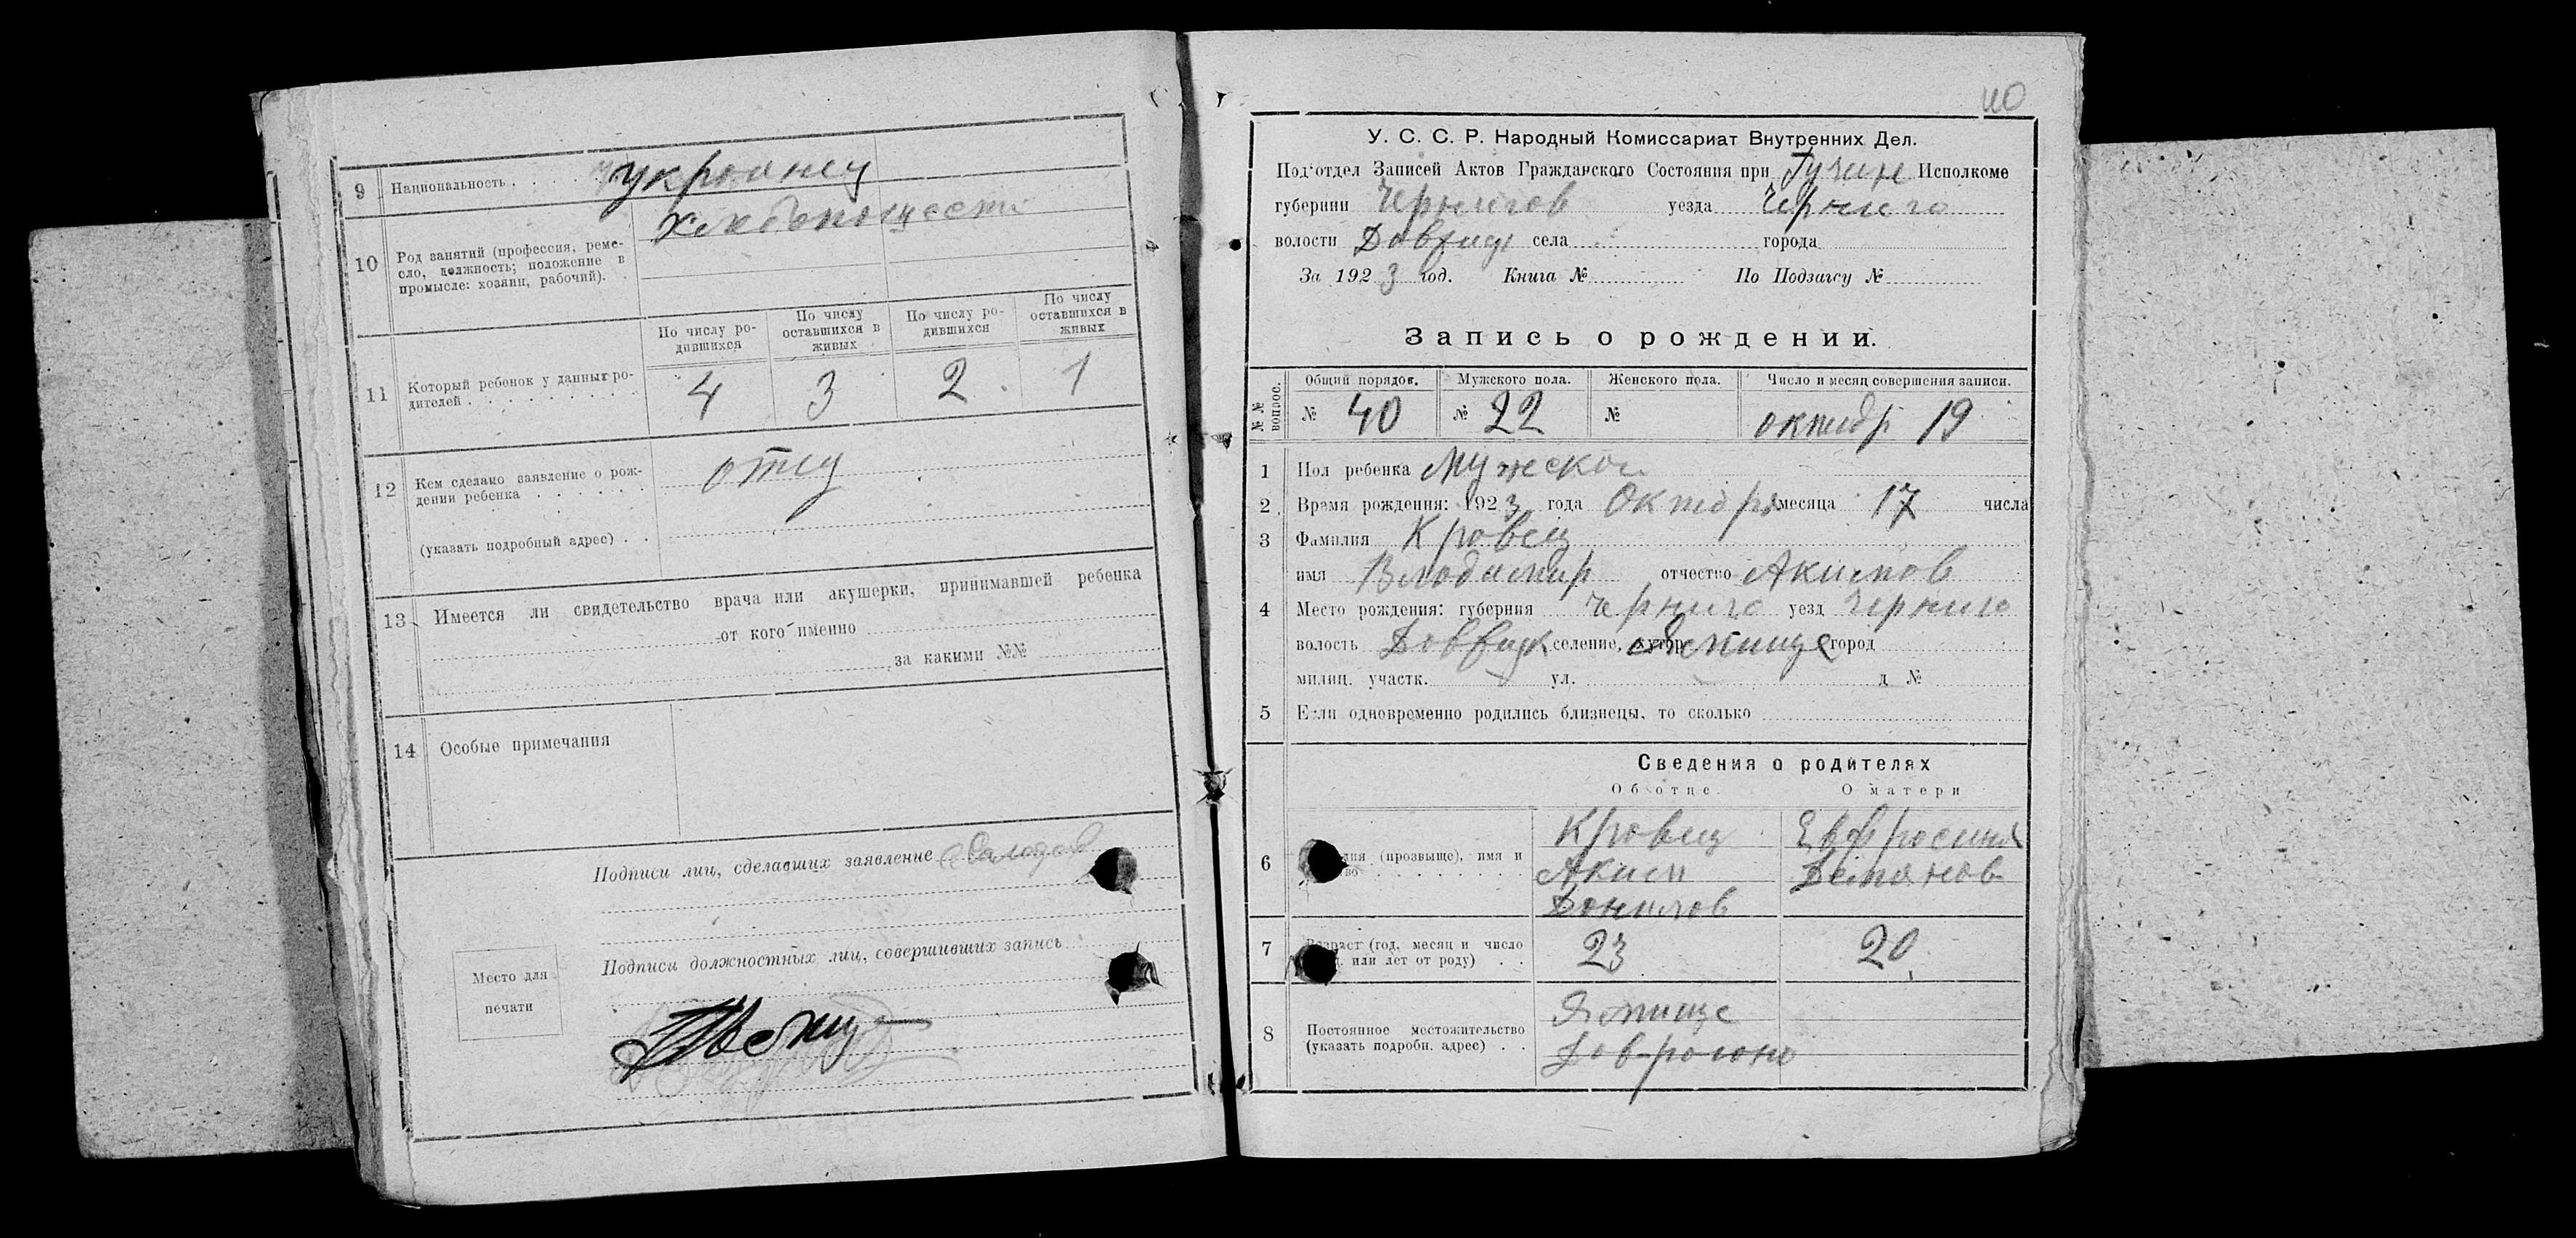 9 Национальность . . . . украинец
10 Род занятий (профессия, реме-
сло, должность; положение в
промысле: хозяин, рабочий). .
По числу ро-
дившихся
По числу
оставшихся в
живых
По числу ро-
дившихся
По числу
оставшихся в
живых
11 Который ребенок у данных ро-
дителей . . . . . . . . . .
4 3 2 1
12 Кем сделано заявление о рож-
дении ребенка . . . . . .
отец
(указать подробный адрес) . .
13 Имеется ли свидетельство врача или акушерки, принимавшей ребенка
от кого именно
за какими №№
14 Особые примечания
Подписи лиц, сделавших заявление
Подписи должностных лиц, совершивших запись
Место для
печати
40
У. С. С. Р. Народный Комиссариат Внутренних Дел.
Под'отдел Записей Актов Гражданского Состояния при Гучин Исполкоме
губернии Чернигов уезда Черниго
волости села города
За 1923 год. Книга № По Подзагсу №
Запись о рождении.
№ № вопрос.
Общий порядов. Мужского пола. Женского пола. Число и месяц совершения записи.
№ 40 № 22 № октябр 19
1 Пол ребенка Мужской
2 Время рождения: 1923 года Октября месяца 17 числа
3 Фамилия Кровец
имя Владимир отчество Акимов
4 Место рождения: губерния Черниго уезд Черниго
волость селение, хутор Ямище город
милиц. участк. ул. д №
5 Если одновременно родились близнецы, то сколько
Сведения о родителях
Об отце. О матери
6 (прозвыще), имя и
Кровец
Аким
Донилов
Евфросиня
Демянов
7 Возраст (год, месяц и число
или лет от роду) . .
23 20
8 Постоянное местожительство
(указать подробн. адрес) . .
Ямище